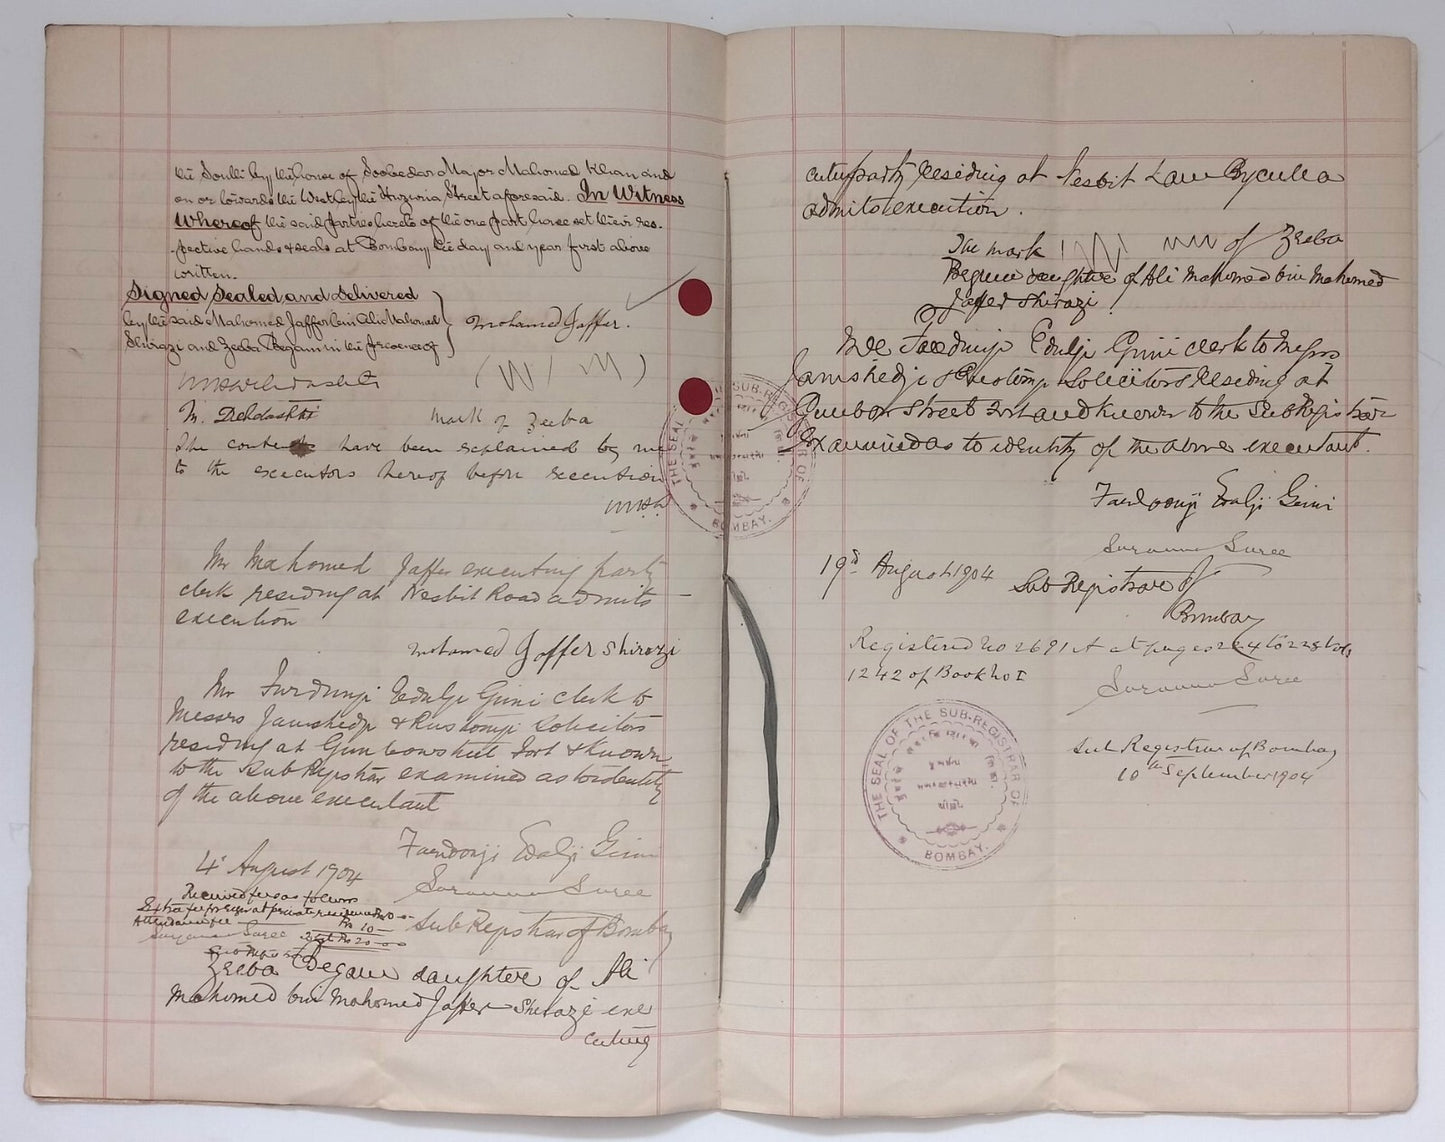 the South by the house of Soobedar Major Mahomed Khan and
on or towards the West by the Street aforesaid. In Witness
Whereof the said parties hereto of the one part have set their res-
pective hands & seals at Bombay the day and year first above
written.
Signed Sealed and Delivered
by the said Mahomed Jaffer bin Ali Mahomed
Shirazi and Zeeba Begam in the presence of
Mohamed Jaffer.
M. Dehdashti
Mark of Zeeba
The contents have been explained by me
to the executors hereof before execution
Mr Mahomed Jaffer executing party
clerk residing at Nesbit Road admits
execution
Mohamed Jaffer Shirazi
Mr Furdunji Edulji Gimi clerk to
Messrs Jamshedji & Rustomji Solicitors
residing at Gunbow Street Fort & known
to the Sub Registrar examined as to identity
of the above executant
Faerdoonji Edalji Gimi
4th August 1904
Received fees as follows
Attendance fee Rs 10
Total Rs 20
Sub Registrar of Bombay
Zeeba Begam daughter of Ali
Mahomed bin Mahomed Jaffer Shirazi exe
cuting
cuting party residing at Nesbit Lane Byculla
admits execution.
The mark of Zeeba
Begum daughter of Ali Mahomed bin Mahomed
Jaffer Shirazi
Mr Edulji Gimi clerk to Messrs
Jamshedji & Rustomji Solicitors residing at
Gunbow Street Fort and known to the Sub Registrar
Examined as to identity of the above executant.
Faerdoonji Edalji Gimi
19th August 1904
Sub Registrar of
Bombay
Registered No 2691 A at pages 224 to 228 Vol
1242 of Book No I
Sub Registrar of Bombay
10th September 1904
THE SEAL OF THE SUB-REGISTRAR OF
BOMBAY.
THE SEAL OF THE SUB-REGISTRAR OF
BOMBAY.